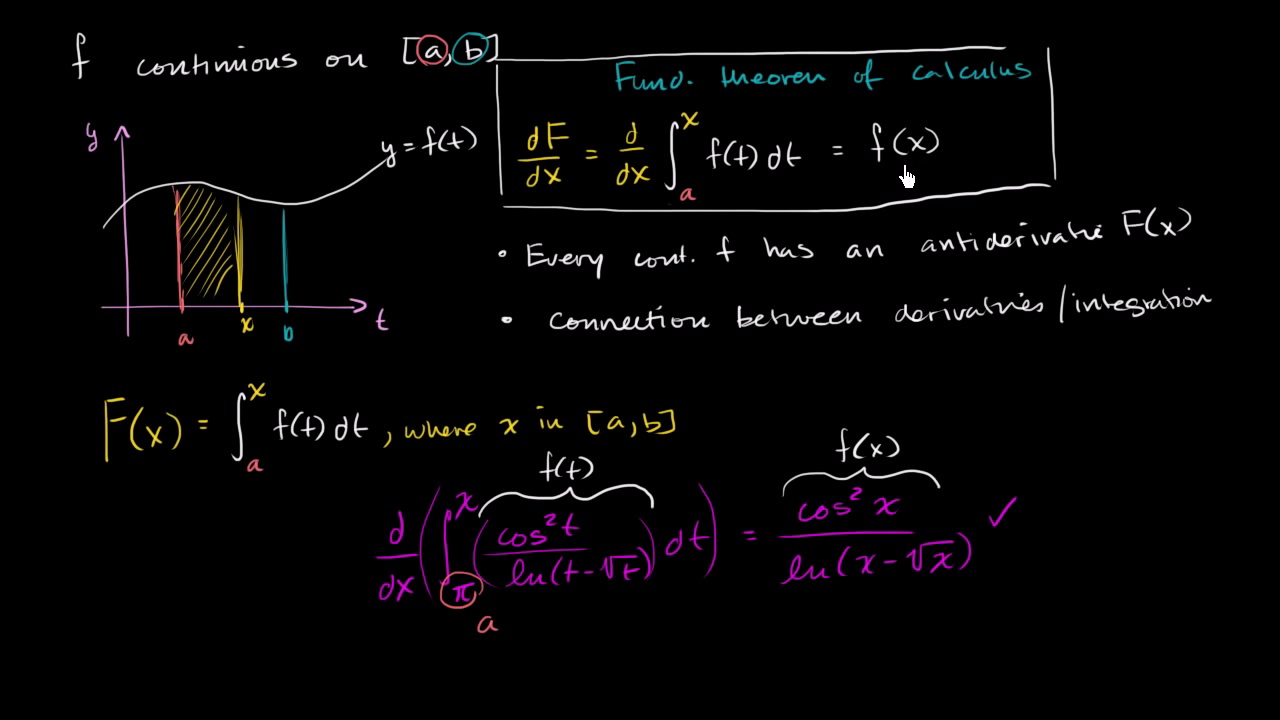 f continuous on [a, b]
Fund. theorem of calculus
dF/dx = d/dx ∫_a^x f(t) dt = f(x)
y
y = f(t)
a x b t
• Every cont. f has an antiderivative F(x)
• Connection between derivatives/integration
F(x) = ∫_a^x f(t) dt, where x in [a, b]
f(t) f(x)
d/dx (∫_π^x (cos²t / ln(t-√t)) dt) = cos²x / ln(x-√x) ✓
a